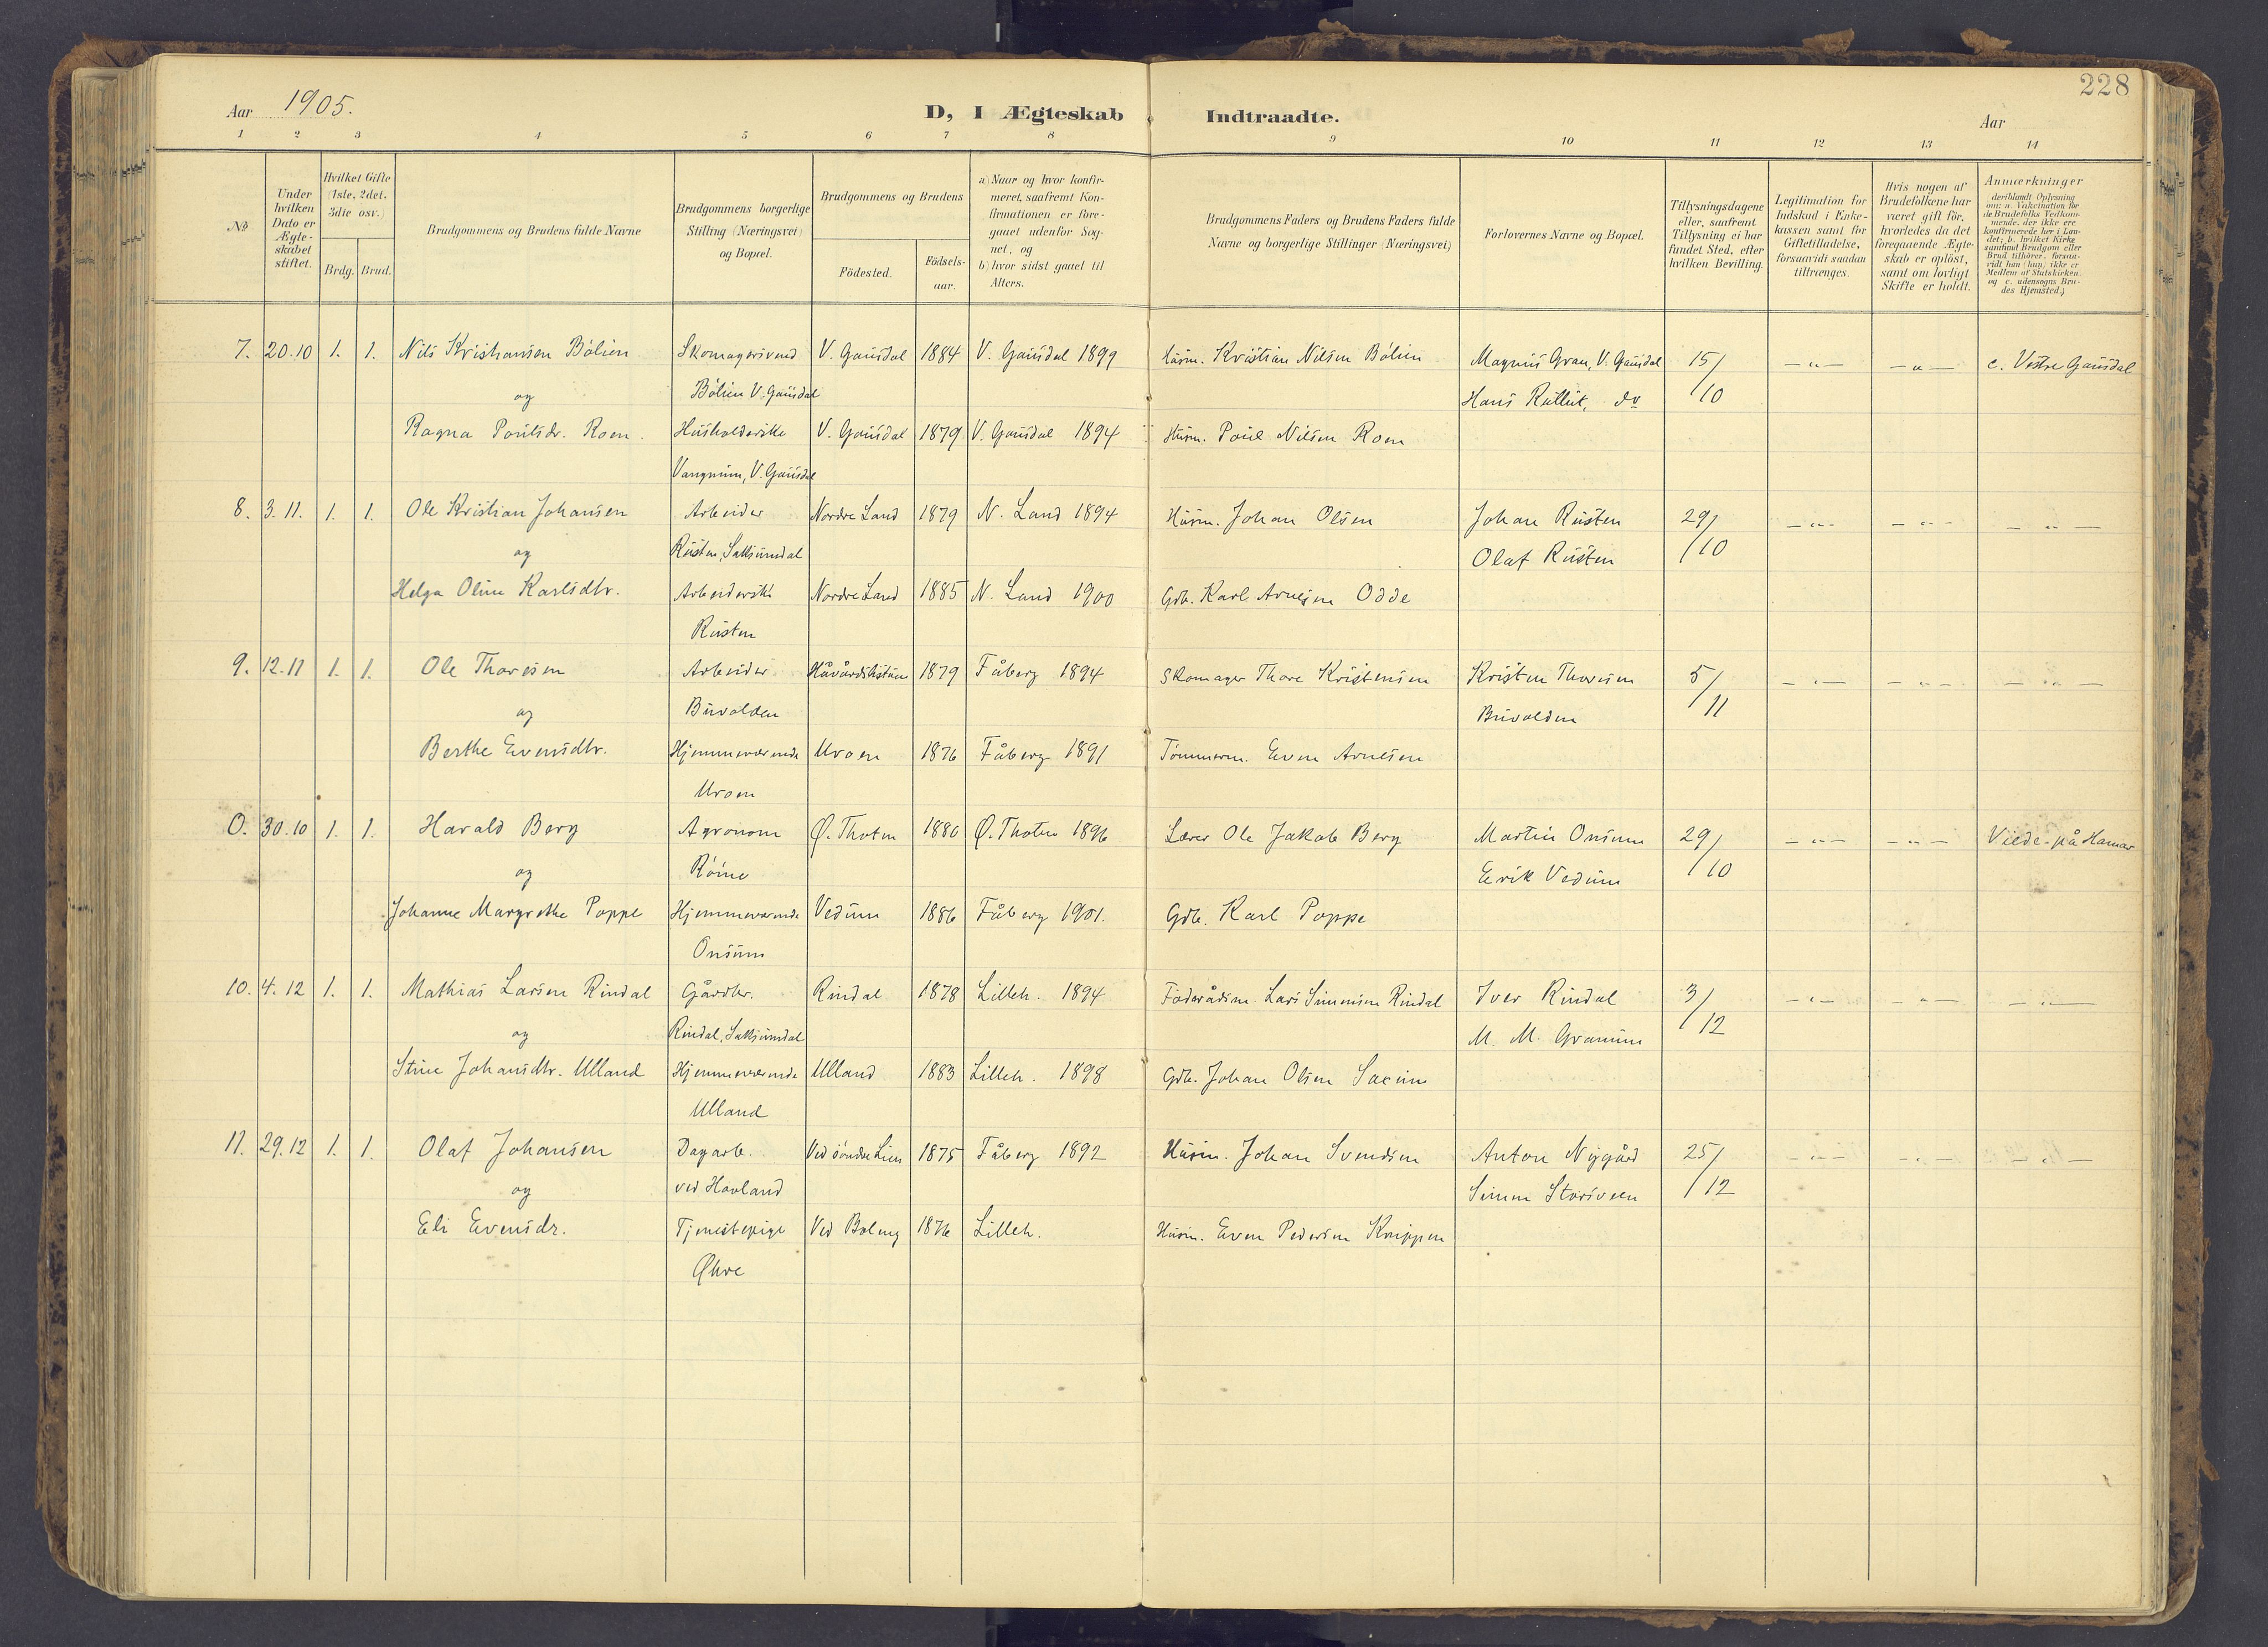 228
Aar 1905. D, I Ægteskab Indtraadte. Aar
1 2 3 4 5 6 7 8 9 10 11 12 13 14
№
Under hvilken Dato er Ægteskabet stiftet.
Hvilket Gifte (1ste, 2det, 3die osv.)
Brdg. Brud.
Brudgommens og Brudens fulde Navne
Brudgommens borgerlige Stilling (Næringsvei) og Bopæl.
Brudgommens og Brudens
Födested.
Födselsaar.
a) Naar og hvor konfirmeret, saafremt Konfirmationen er foregaaet udenfor Sognet, og
b) hvor sidst gaaet til Alters.
Brudgommens Faders og Brudens Faders fulde Navne og borgerlige Stillinger (Næringsvei)
Forlovernes Navne og Bopæl.
Tillysningsdagene eller, saafremt Tillysning ei har fundet Sted, efter hvilken Bevilling.
Legitimation for Indskud i Enkekassen samt for Giftetilladelse, forsaavidt saadan tiltrænges.
Hvis nogen af Brudefolkene har været gift før, hvorledes da det foregaaende Ægteskab er oplöst, samt om lovligt Skifte er holdt.
Anmærkninger deriblandt Oplysning om: a. Vakcination for de Brudefolks Vedkommende, der ikke ere konfirmerede her i Landet; b. hvilket Kirkesamfund Brudgom eller Brud tilhörer, forsaavidt han (hun) ikke er Medlem af Statskirken. og c. udensogns Brudes Hjemsted.)
7. 20.10 1. 1. Nils Kristiansen Bölien Skomagersvend V. Gausdal 1884 V. Gausdal 1899 Husm. Kristian Nilsen Bölien Magnus Gran, V. Gausdal 15/ —"— —"— c. Vestre Gausdal
og Bölien V. Gausdal Hans Rullut, do 10
Ragna Poulsdr. Roen. Husholderske V. Gausdal 1879 V. Gausdal 1894 Husm. Poul Nilsen Roen
Vangnum, V. Gausdal
8. 3.11. 1. 1. Ole Kristian Johansen Arbeider Nordre Land 1879 N. Land 1894 Husm. Johan Olsen Johan Rusten 29/ —"— —"— —"—
og Rusten, Saksumdal Olaf Rusten 10
Helga Oline Karlsdtr. Arbeiderske Nordre Land 1885 N. Land 1900 Gdb. Karl Arnesen Odde
Rusten
9. 12.11 1. 1. Ole Thoresen Arbeider Håvårdsstuen 1879 Fåberg 1894 Skomager Thore Kristensen Kristen Thoresen 5/ —"— —"— —"—
og Buvolden Buvolden 11
Berthe Evensdtr. Hjemmeværende Uroen 1876 Fåberg 1891 Tömmerm. Even Arnesen
Uroen
0. 30.10 1. 1. Harald Berg Agronom Ø. Thoten 1880 Ø. Thoten 1896 Lærer Ole Jakob Berg Martin Onsum 29/ —"— —"— Viede på Hamar
og Röine Eerik Vedum 10
Johanne Margrethe Poppe Hjemmeværende Vedum 1886 Fåberg 1901. Gdb. Karl Poppe
Onsum
10. 4.12 1. 1. Mathias Larsen Rindal Gårdbr. Rindal 1878 Lilleh. 1894 Föderådsm. Lars Simensen Rindal Iver Rindal 3/ —"— —"— —"—
og Rindal, Saksumdal M. M. Granum 12
Stine Johansdtr. Ulland Hjemmeværende Ulland 1883 Lilleh. 1898 Gdb. Johan Olsen Saxum
Ulland
11. 29.12 1. 1. Olaf Johansen Dagarb. Ved söndre Lien 1875 Fåberg 1892 Husm. Johan Svendsen Anton Nygård 25/ —"— —"— —"—
og ved Hovland Simen Storsveen 12
Eli Evensdr. Tjenestepige Ved Boleng 1876 Lilleh. Husm. Even Pedersen Knippen
Øhre